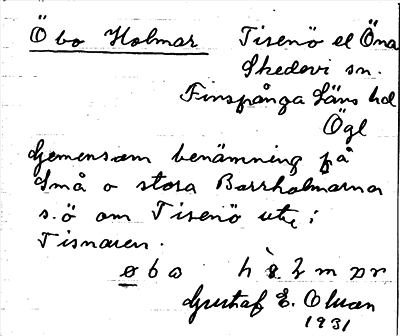 Ö bo Holmar Tisenö el Öna
Skedevi sn.
Finspånga Läns hd
Ögl
Gemensam benämning på
Små o stora Barrholmarna
s.ö om Tisenö ute i
Tisnaren.
ø b ω
Gustaf E. Olsson
1931